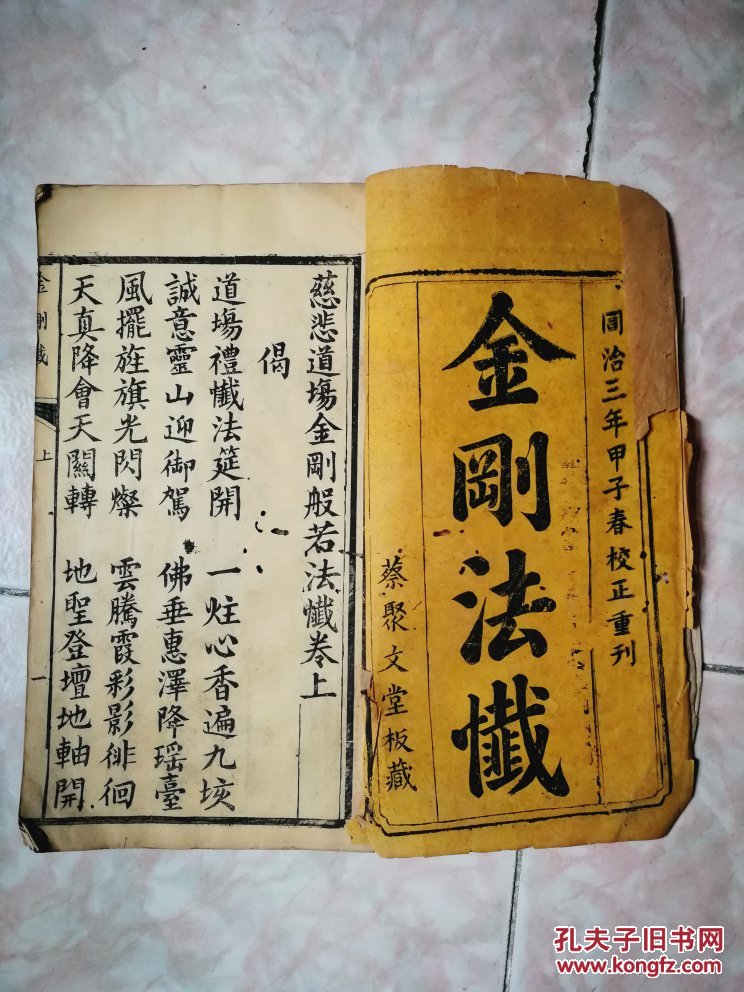 同治三年甲子春校正重刊
金剛法懺
蔡聚文堂板藏
慈悲道塲金剛般若法懺卷上
偈
道塲禮懺法筵開 一炷心香遍九垓
誠意靈山迎御駕 佛垂惠澤降瑶臺
風擺旌旗光閃燦 雲騰霞彩影徘徊
天真降會天關轉 地聖登壇地軸開
金剛懺 上 一
孔夫子旧书网
www.kongfz.com